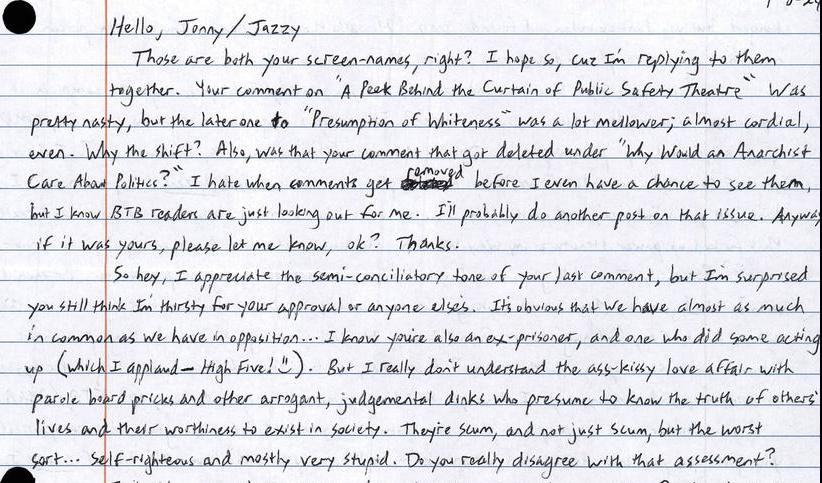 Hello, Jonny/Jazzy
Those are both your screen-names, right? I hope so, cuz I'm replying to them
together. Your comment on "A Peek Behind the Curtain of Public Safety Theatre" was
pretty nasty, but the later one to "Presumption of Whiteness" was a lot mellower; almost cordial,
even. Why the shift? Also, was that your comment that got deleted under "Why Would an Anarchist
Care About Politics?" I hate when comments get removed before I even have a chance to see them,
but I know BTB readers are just looking out for me. I'll probably do another post on that issue. Anyway
if it was yours, please let me know, ok? Thanks.
So hey, I appreciate the semi-conciliatory tone of your last comment, but I'm surprised
you still think I'm thirsty for your approval or anyone else's. It's obvious that we have almost as much
in common as we have in opposition... I know you're also an ex-prisoner, and one who did some acting
up (which I applaud - High Five! ☺). But I really don't understand the ass-kissy love affair with
parole board pricks and other arrogant, judgemental dinks who presume to know the truth of others'
lives and their worthiness to exist in society. They're scum, and not just scum, but the worst
sort... self-righteous and mostly very stupid. Do you really disagree with that assessment?